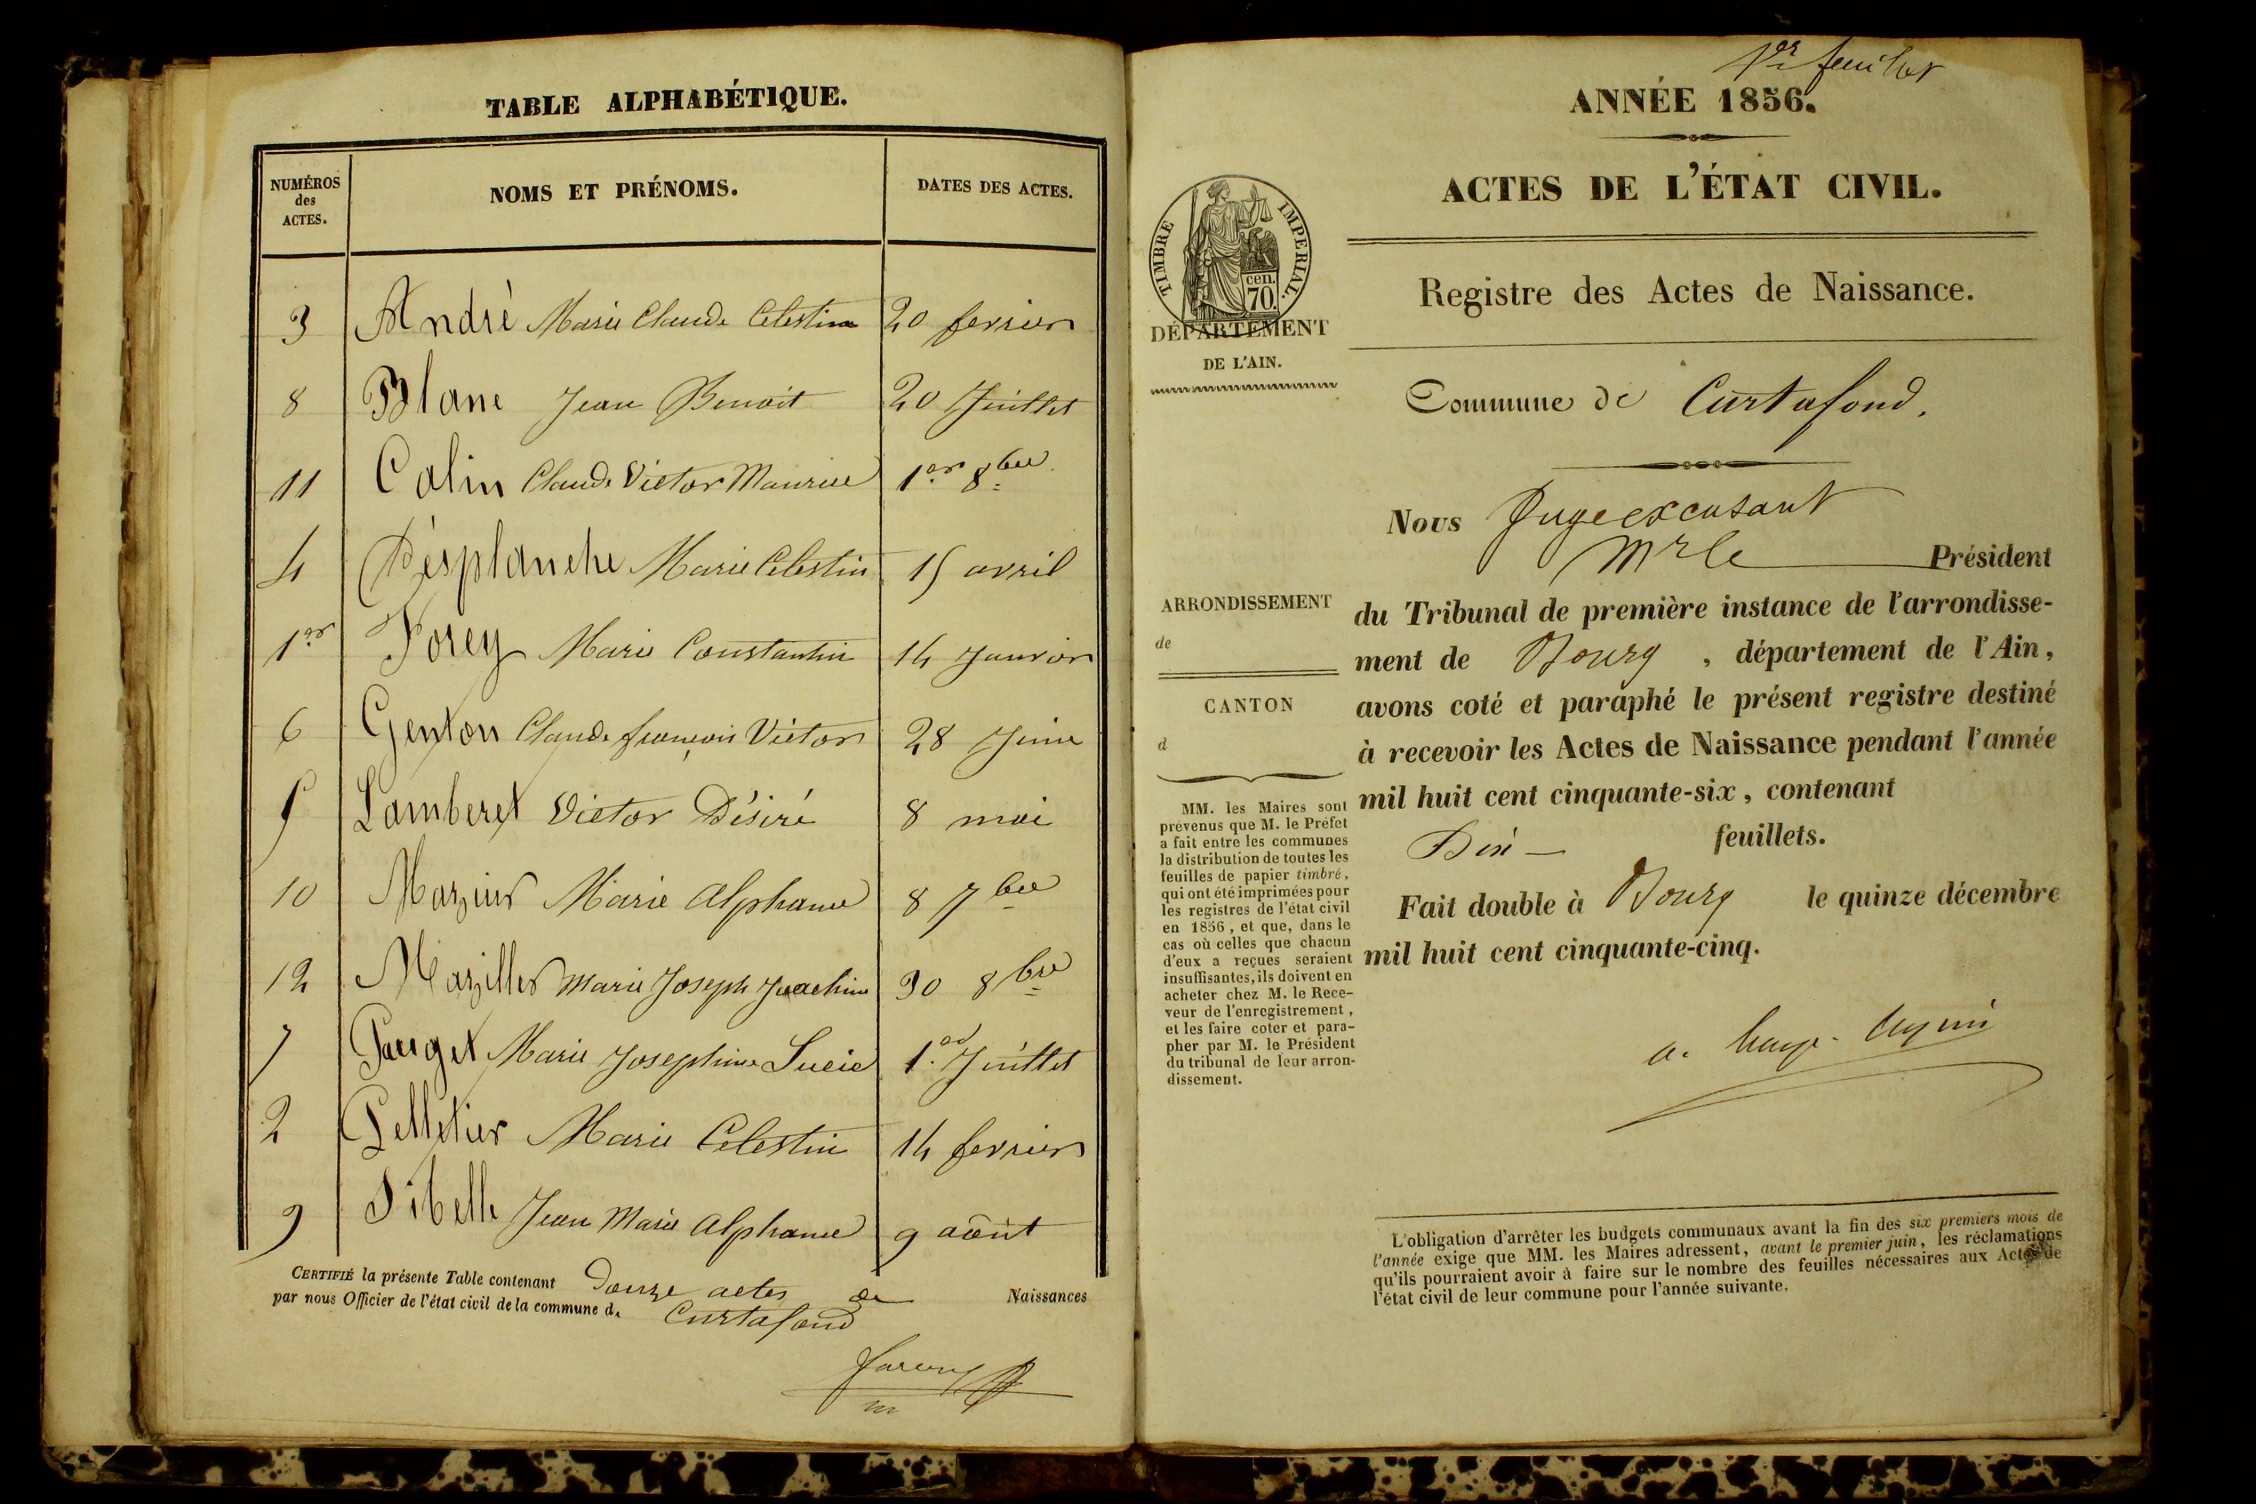 TABLE ALPHABÉTIQUE.
NUMÉROS
des
ACTES.
NOMS ET PRÉNOMS.
DATES DES ACTES.
3 André Marie Claude Celestine 20 fevrier
8 Blanc Jean Benoit 20 Juillet
11 Colin Claude Victor Maurice 1er 8bre
4 Désplanche Marie Celestin 15 avril
1er Forey Marie Constantin 14 Janvier
6 Genton Claude françois Victor 28 Juin
5 Lamberet Victor Désiré 8 mai
10 Mazuir Marie Alphonse 8 7bre
12 Maziller Marie Joseph Joachim 30 8bre
7 Pauget Marie Josephine Lucie 1er Juillet
2 Pelletier Marie Celestin 14 fevrier
9 Sibelle Jean Marie Alphonse 9 août
CERTIFIÉ la présente Table contenant Douze actes de Naissances
par nous Officier de l'état civil de la commune d. Curtafond
1er feuillet
ANNÉE 1856.
ACTES DE L'ÉTAT CIVIL.
TIMBRE IMPERIAL.
cen.
70
DÉPARTEMENT
DE L'AIN.
Registre des Actes de Naissance.
Commune de Curtafond.
ARRONDISSEMENT
de
CANTON
d
MM. les Maires sont
prévenus que M. le Préfet
a fait entre les communes
la distribution de toutes les
feuilles de papier timbré,
qui ont été imprimées pour
les registres de l'état civil
en 1856, et que, dans le
cas où celles que chacun
d'eux a reçues seraient
insuffisantes, ils doivent en
acheter chez M. le Rece-
veur de l'enregistrement,
et les faire coter et para-
pher par M. le Président
du tribunal de leur arron-
dissement.
Nous Juge excusant
Mr le Président
du Tribunal de première instance de l'arrondisse-
ment de Bourg, département de l'Ain,
avons coté et paraphé le présent registre destiné
à recevoir les Actes de Naissance pendant l'année
mil huit cent cinquante-six, contenant
Dix feuillets.
Fait double à Bourg le quinze décembre
mil huit cent cinquante-cinq.
L'obligation d'arrêter les budgets communaux avant la fin des six premiers mois de
l'année exige que MM. les Maires adressent, avant le premier juin, les réclamations
qu'ils pourraient avoir à faire sur le nombre des feuilles nécessaires aux Actes de
l'état civil de leur commune pour l'année suivante.